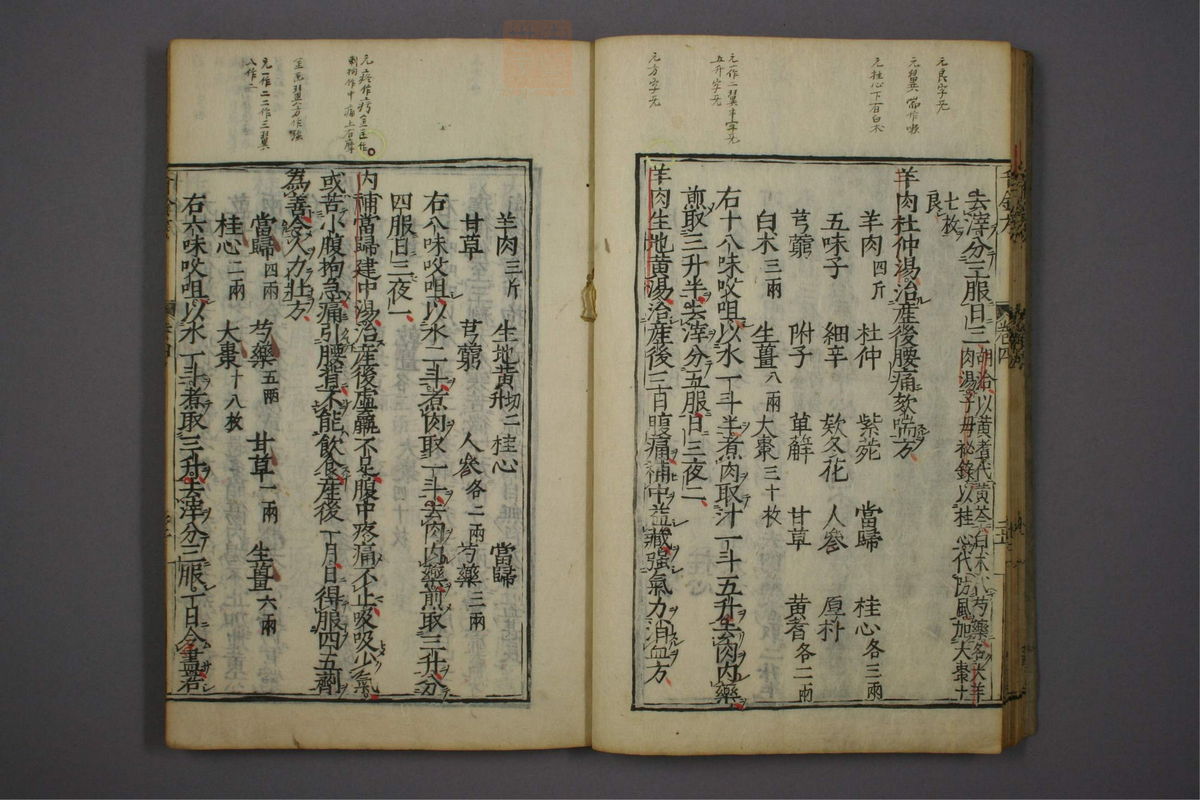 元良字无
元翼當作嗽
元桂心下有白术
元一作二翼半字无
五升字无
元方字无
去滓分三服日三 胡洽以黄耆代黄芩白术代芍藥名大羊
肉湯子母祕錄以桂心代防風加大棗十
七枚
良
羊肉杜仲湯治產後腰痛欬喘方
羊肉四斤 杜仲 紫菀 當歸 桂心各三兩
五味子 細辛 欵冬花 人參 厚朴
芎藭 附子 萆薢 甘草 黄耆各二兩
白术三兩 生薑八兩 大棗三十枚
右十八味㕮咀以水一斗半煮肉取汁一斗五升去肉内藥
煎取三升半去滓分五服日三夜二
羊肉生地黄湯治產後三日腹痛補中益藏强氣力消血方
卷四
羊肉三斤 生地黄切二升 桂心 當歸
甘草 芎藭 人參各二兩 芍藥三兩
右八味㕮咀以水二斗煮肉取一斗去肉内藥煎取三升分
四服日三夜一
内補當歸建中湯治產後虚羸不足腹中㽲痛不止吸吸少氣
或苦小腹拘急痛引腰背不能飲食產後一月日得服四五劑
為善令人力壯方
當歸四兩 芍藥五兩 甘草二兩 生薑六兩
桂心二兩 大棗十八枚
右六味㕮咀以水一斗煮取三升去滓分三服一日令盡若